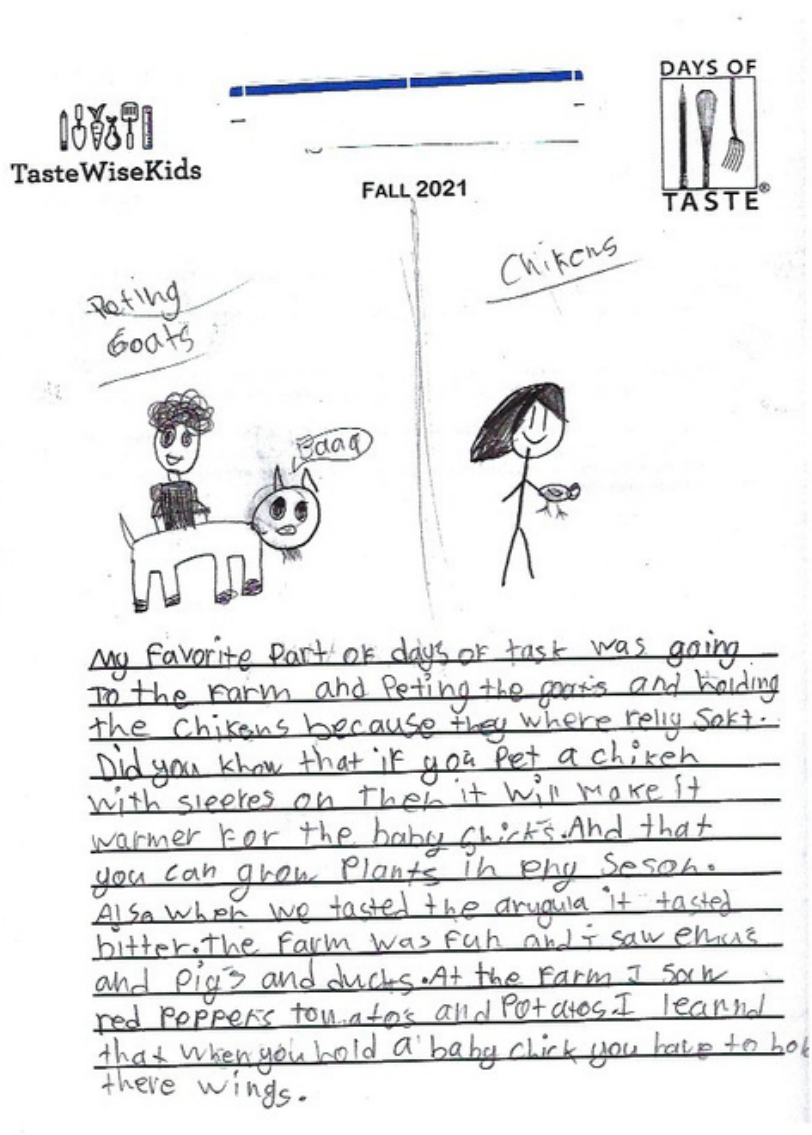 DAYS OF
TASTE®
TasteWiseKids
FALL 2021
Peting
Goats
Chikens
Baaa
My favorite Part of days of task was going
To the farm and Peting the goats and holding
the chikens because they where relly soft.
Did you know that if you Pet a chiken
with sleeves on then it will make it
warmer for the baby chicks. And that
you can grow Plants in eny Seson.
Alsa when we tasted the arugula it tasted
bitter. the farm was fun and i saw emus
and Pigs and ducks. At the farm I saw
red PePPers tomatos and Potatos I learnd
that when you hold a baby chick you have to hol
there wings.